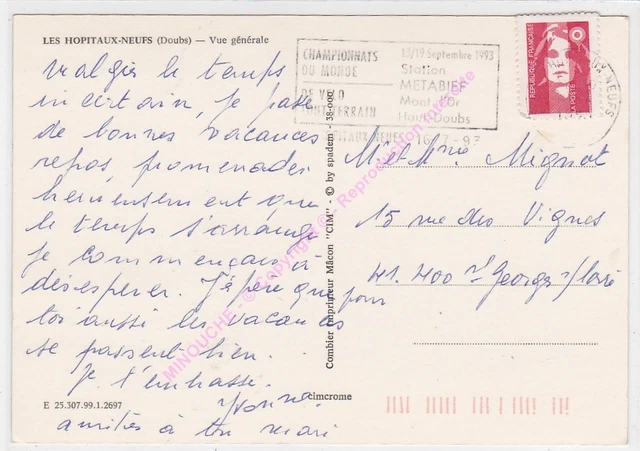 LES HOPITAUX-NEUFS (Doubs) — Vue générale
Malgré le temps
incertain, je passe
de bonnes vacances
repos, promenades
heureusement que
le temps s'arrange
je commençais à
désespérer. J'espère que pour
toi aussi les vacances
se passent bien.
Je t'embrasse.
Yvonne.
amitiés à ton mari
E 25.307.99.1.2697
cimcrome
Combier Imprimeur Mâcon "CIM" - © by spadem - 38-000
MINOUCHE © Copyright © - Reproduction interdite
CHAMPIONNATS
DU MONDE
DE VELO
TOUT TERRAIN
13/19 Septembre 1993
Station
METABIEF
Mont d'Or
Haut Doubs
HOPITAUX-NEUFS 16-7-93
REPUBLIQUE FRANÇAISE
LA POSTE
M et Mme Mignot
15 rue des Vignes
41.400 St Georges s/Loire